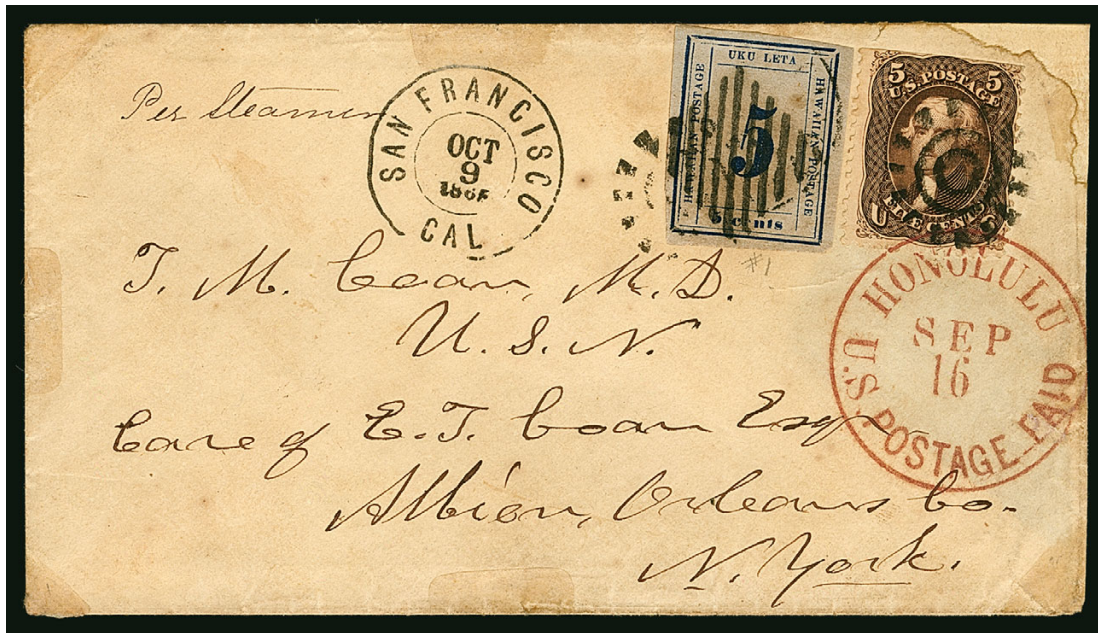 Per Steamer
SAN FRANCISCO
OCT
9
CAL
UKU LETA
HAWAIIAN POSTAGE
HAWAIIAN POSTAGE
5
5 cents
#1
5 5
U.S. POSTAGE
U
HONOLULU
SEP
16
U.S. POSTAGE PAID
T. M. Coan, M.D.
U. S. N.
Care of E. T. Coan Esqr
Albion, Orleans Co.
N. York.